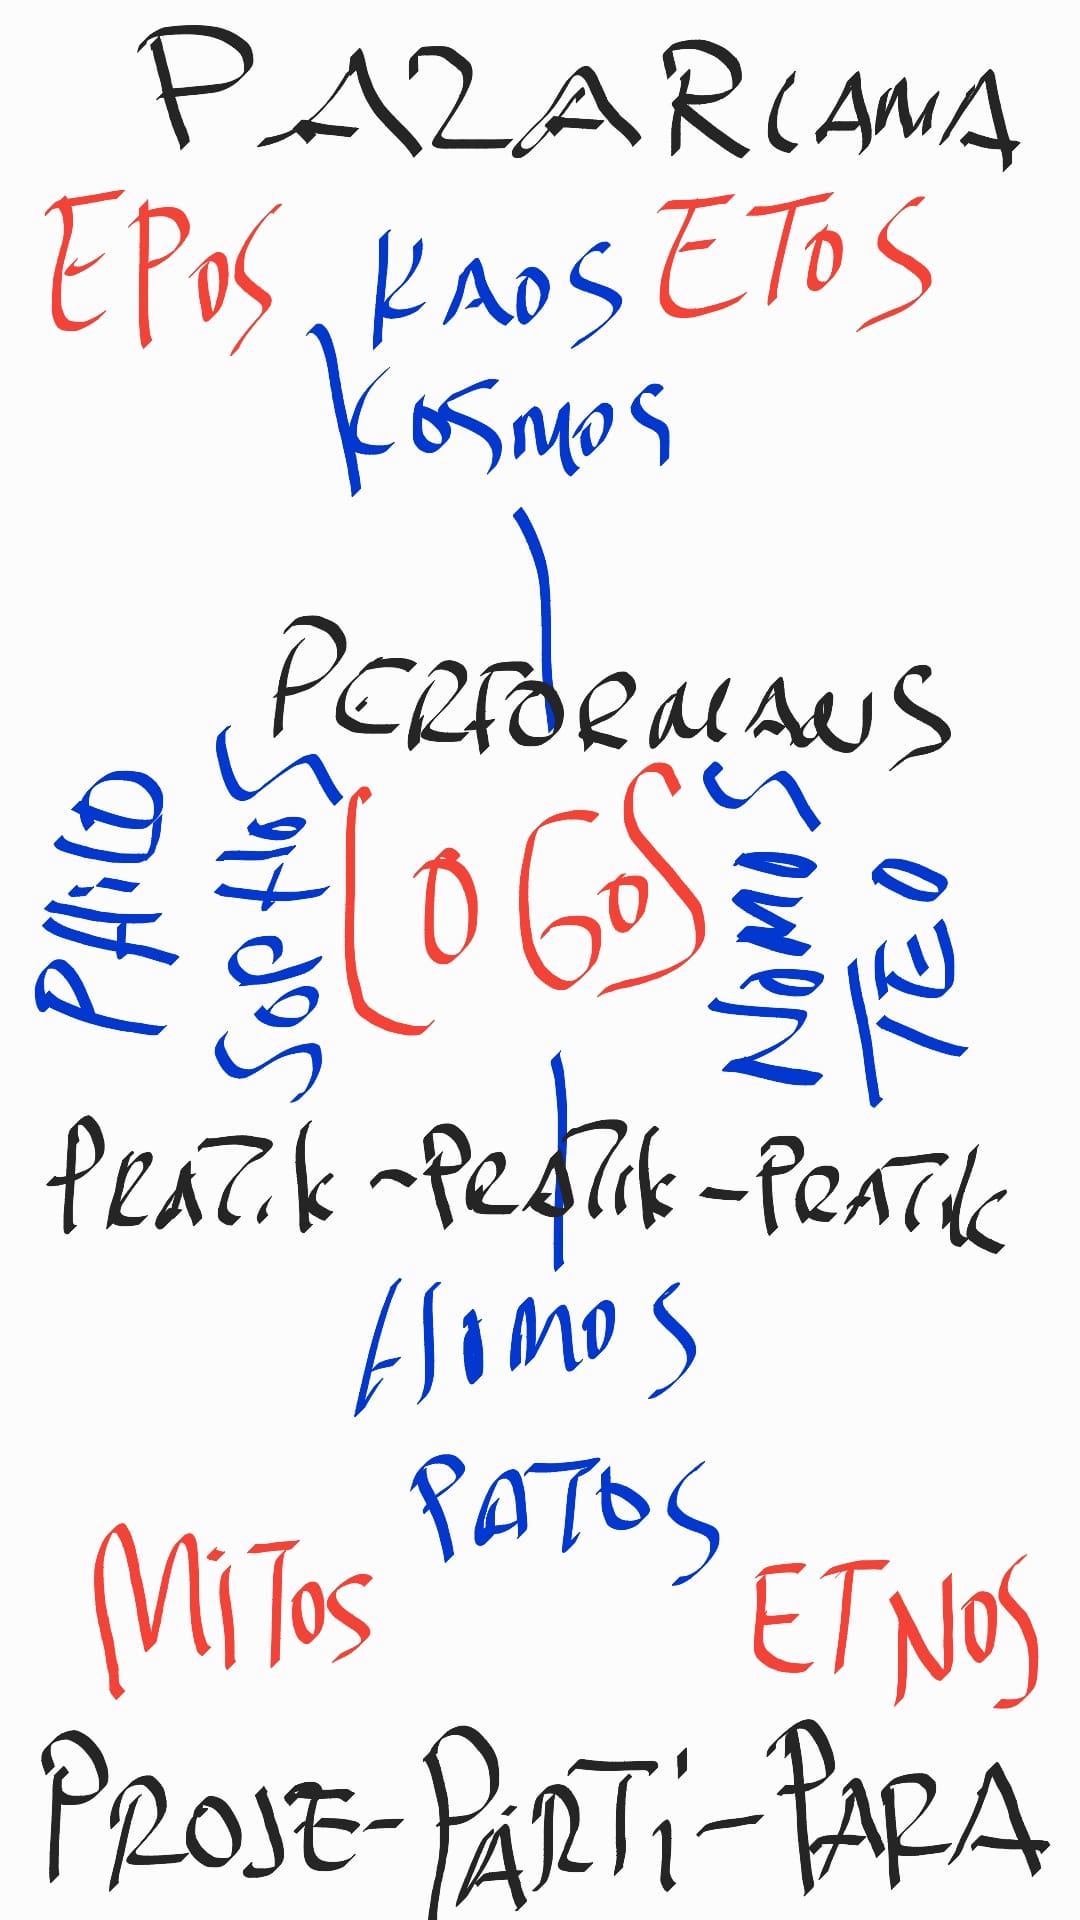 PAZARCAMA
EPOS KAOS ETOS
KOSMOS
PERFORMANS
PHiLO SOPHOS LOGOS NOMOS TEO
PRATiK - PRATiK - PRATiK
PATOS
MiTOS ETNOS
PROJE - PARTi - PARA